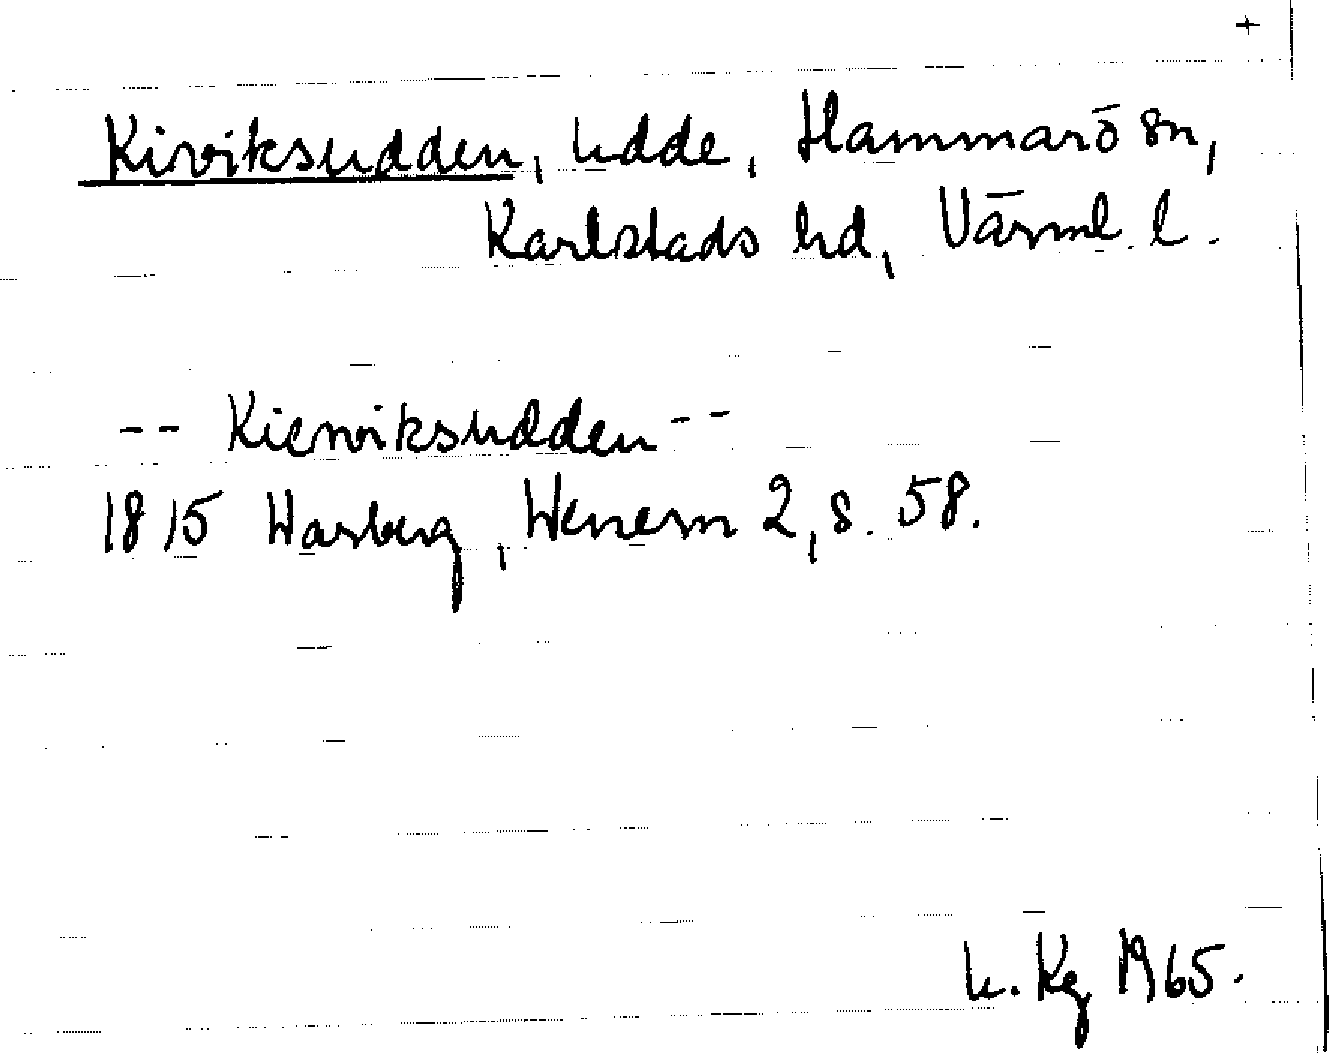 +
Kirviksudden, udde, Hammarö sn,
Karlstads hd, Värml. l.
-- Kierviksudden --
1815 Warberg, Wenern 2, s. 58.
u. Kg 1965.